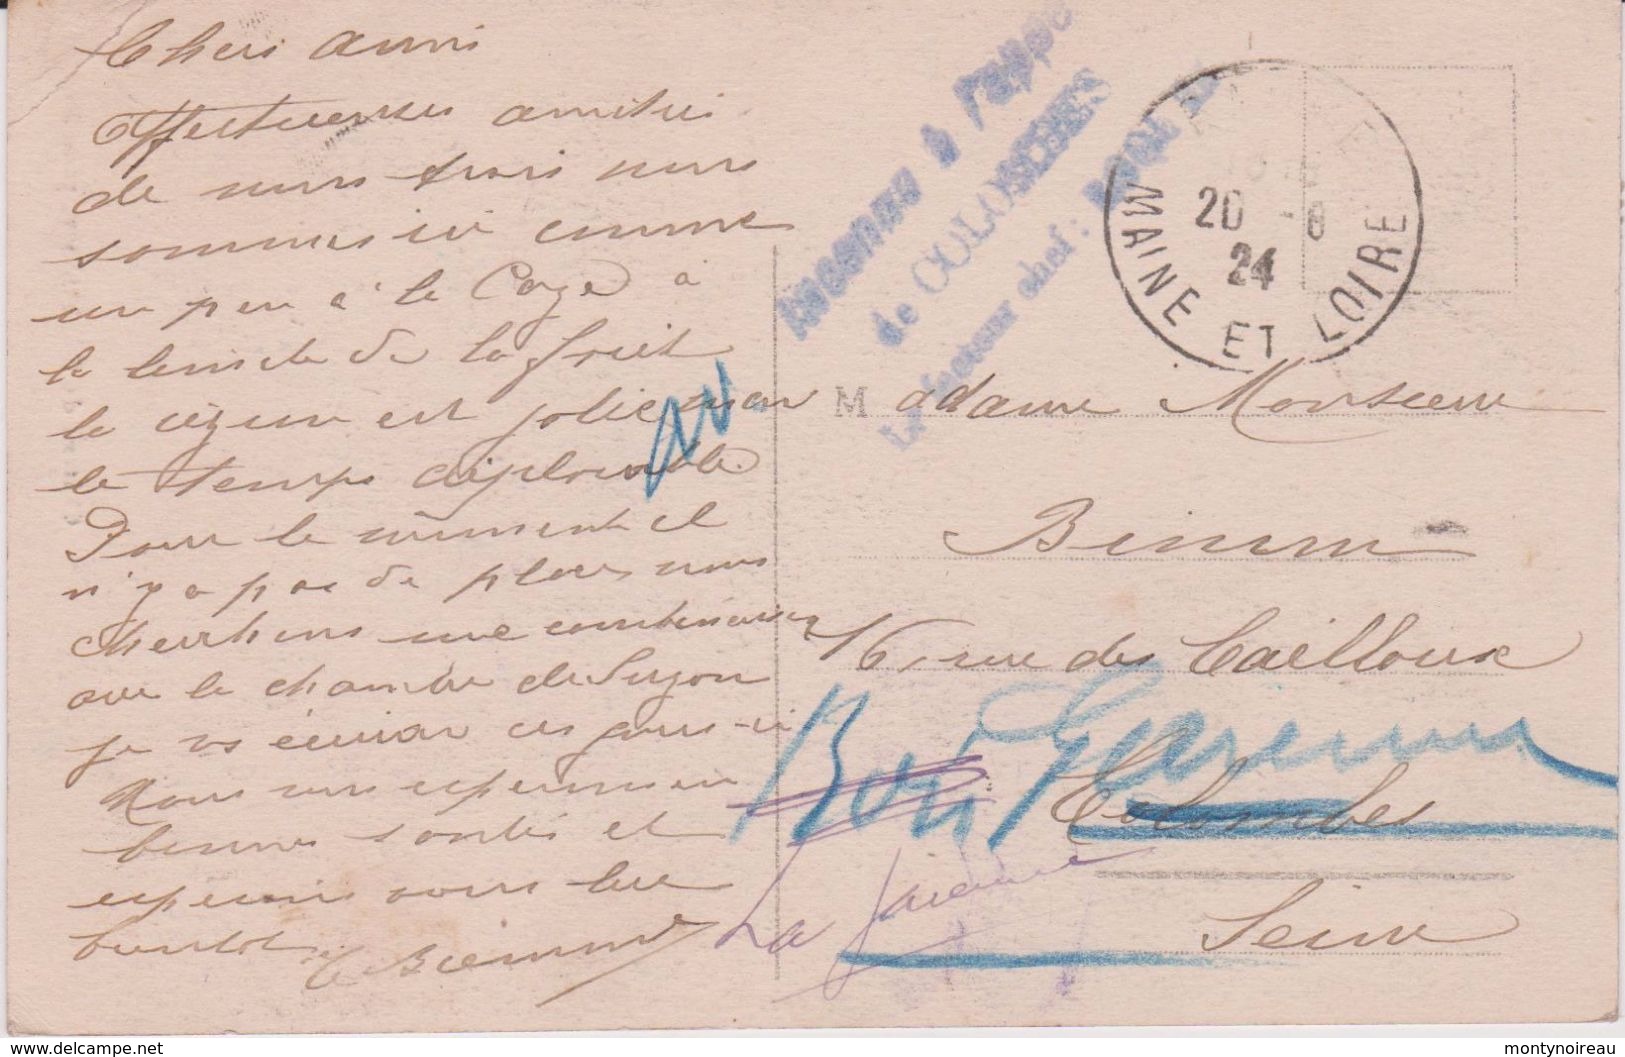 Chers amis
Affectueuses amitiés
de nous trois nous
sommes ici comme
un peu à la
la limite de la
la région est jolie mais
le temps déplorable.
Pour le moment il
n'y a pas de place nous
cherchons une combinaison
avec la chambre de Suzon
je vs écrirai ces jours-ci
Nous vous espérons en
bonne santé et
espérons vous lire
bientôt
Inconnu à l'appel
de COLOMBES
Le facteur chef :
20 -8
24
MAINE ET LOIRE
Madame Monsieur
16 rue des Cailloux
Bois Garenne
Colombes
La Garenne
Seine
www.delcampe.net
montynoireau